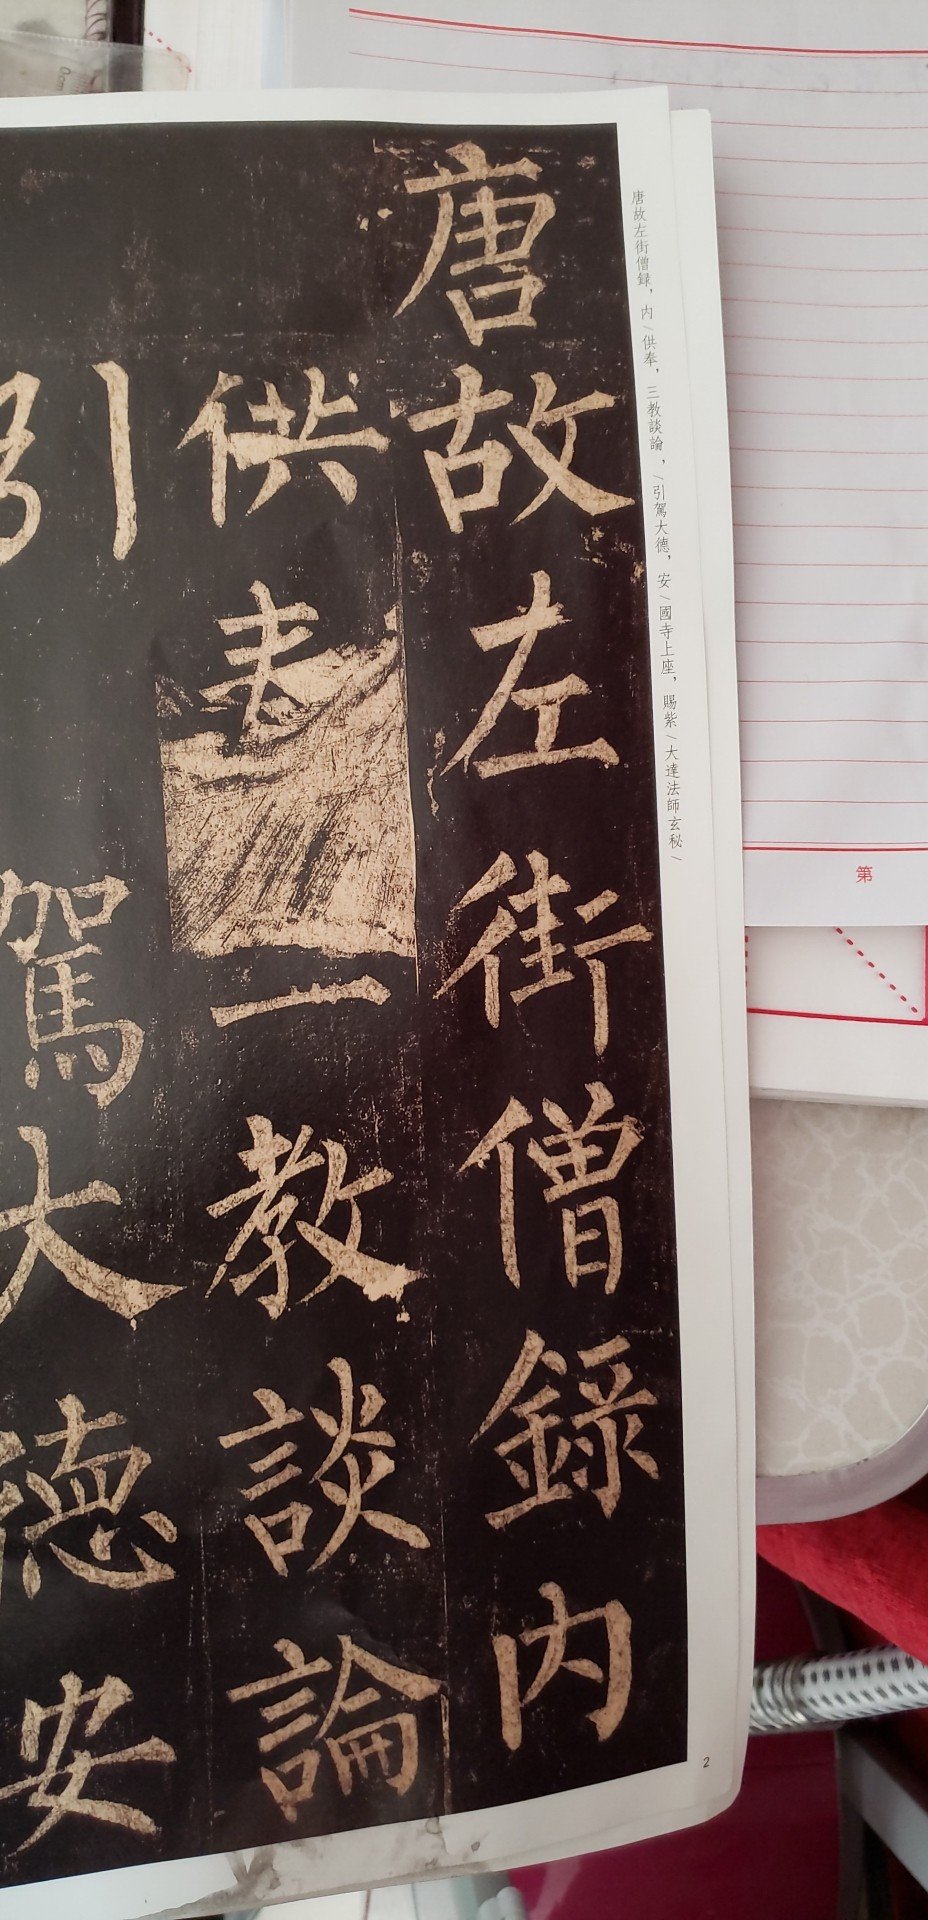 唐故左街僧録，内\供奉，三教談論，\引駕大德，安\國寺上座，賜紫\大達法師玄秘\
唐故左街僧録内
供奉三教談論
引駕大德安
2
第